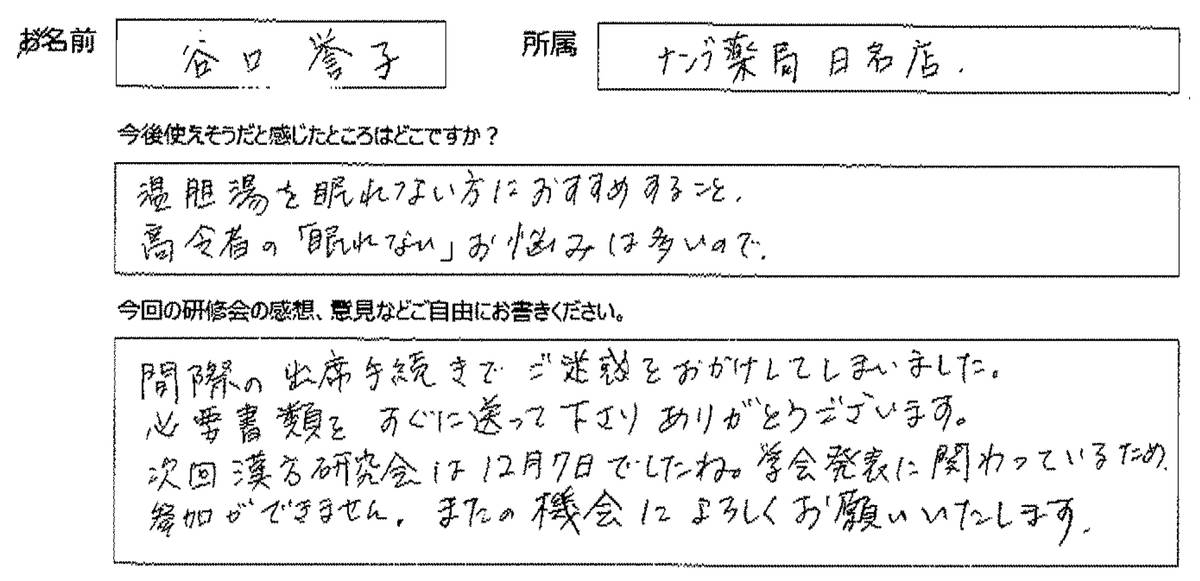 お名前 谷口 誉子 所属 ナンブ薬局 日名店.
今後使えそうだと感じたところはどこですか?
温胆湯を眠れない方におすすめすること.
高令者の「眠れない」お悩みは多いので.
今回の研修会の感想、意見などご自由にお書きください。
間際の出席手続きでご迷惑をおかけしてしまいました。
必要書類をすぐに送って下さりありがとうございます。
次回漢方研究会は12月7日でしたね。学会発表に関わっているため
参加ができません. またの機会によろしくお願いいたします.